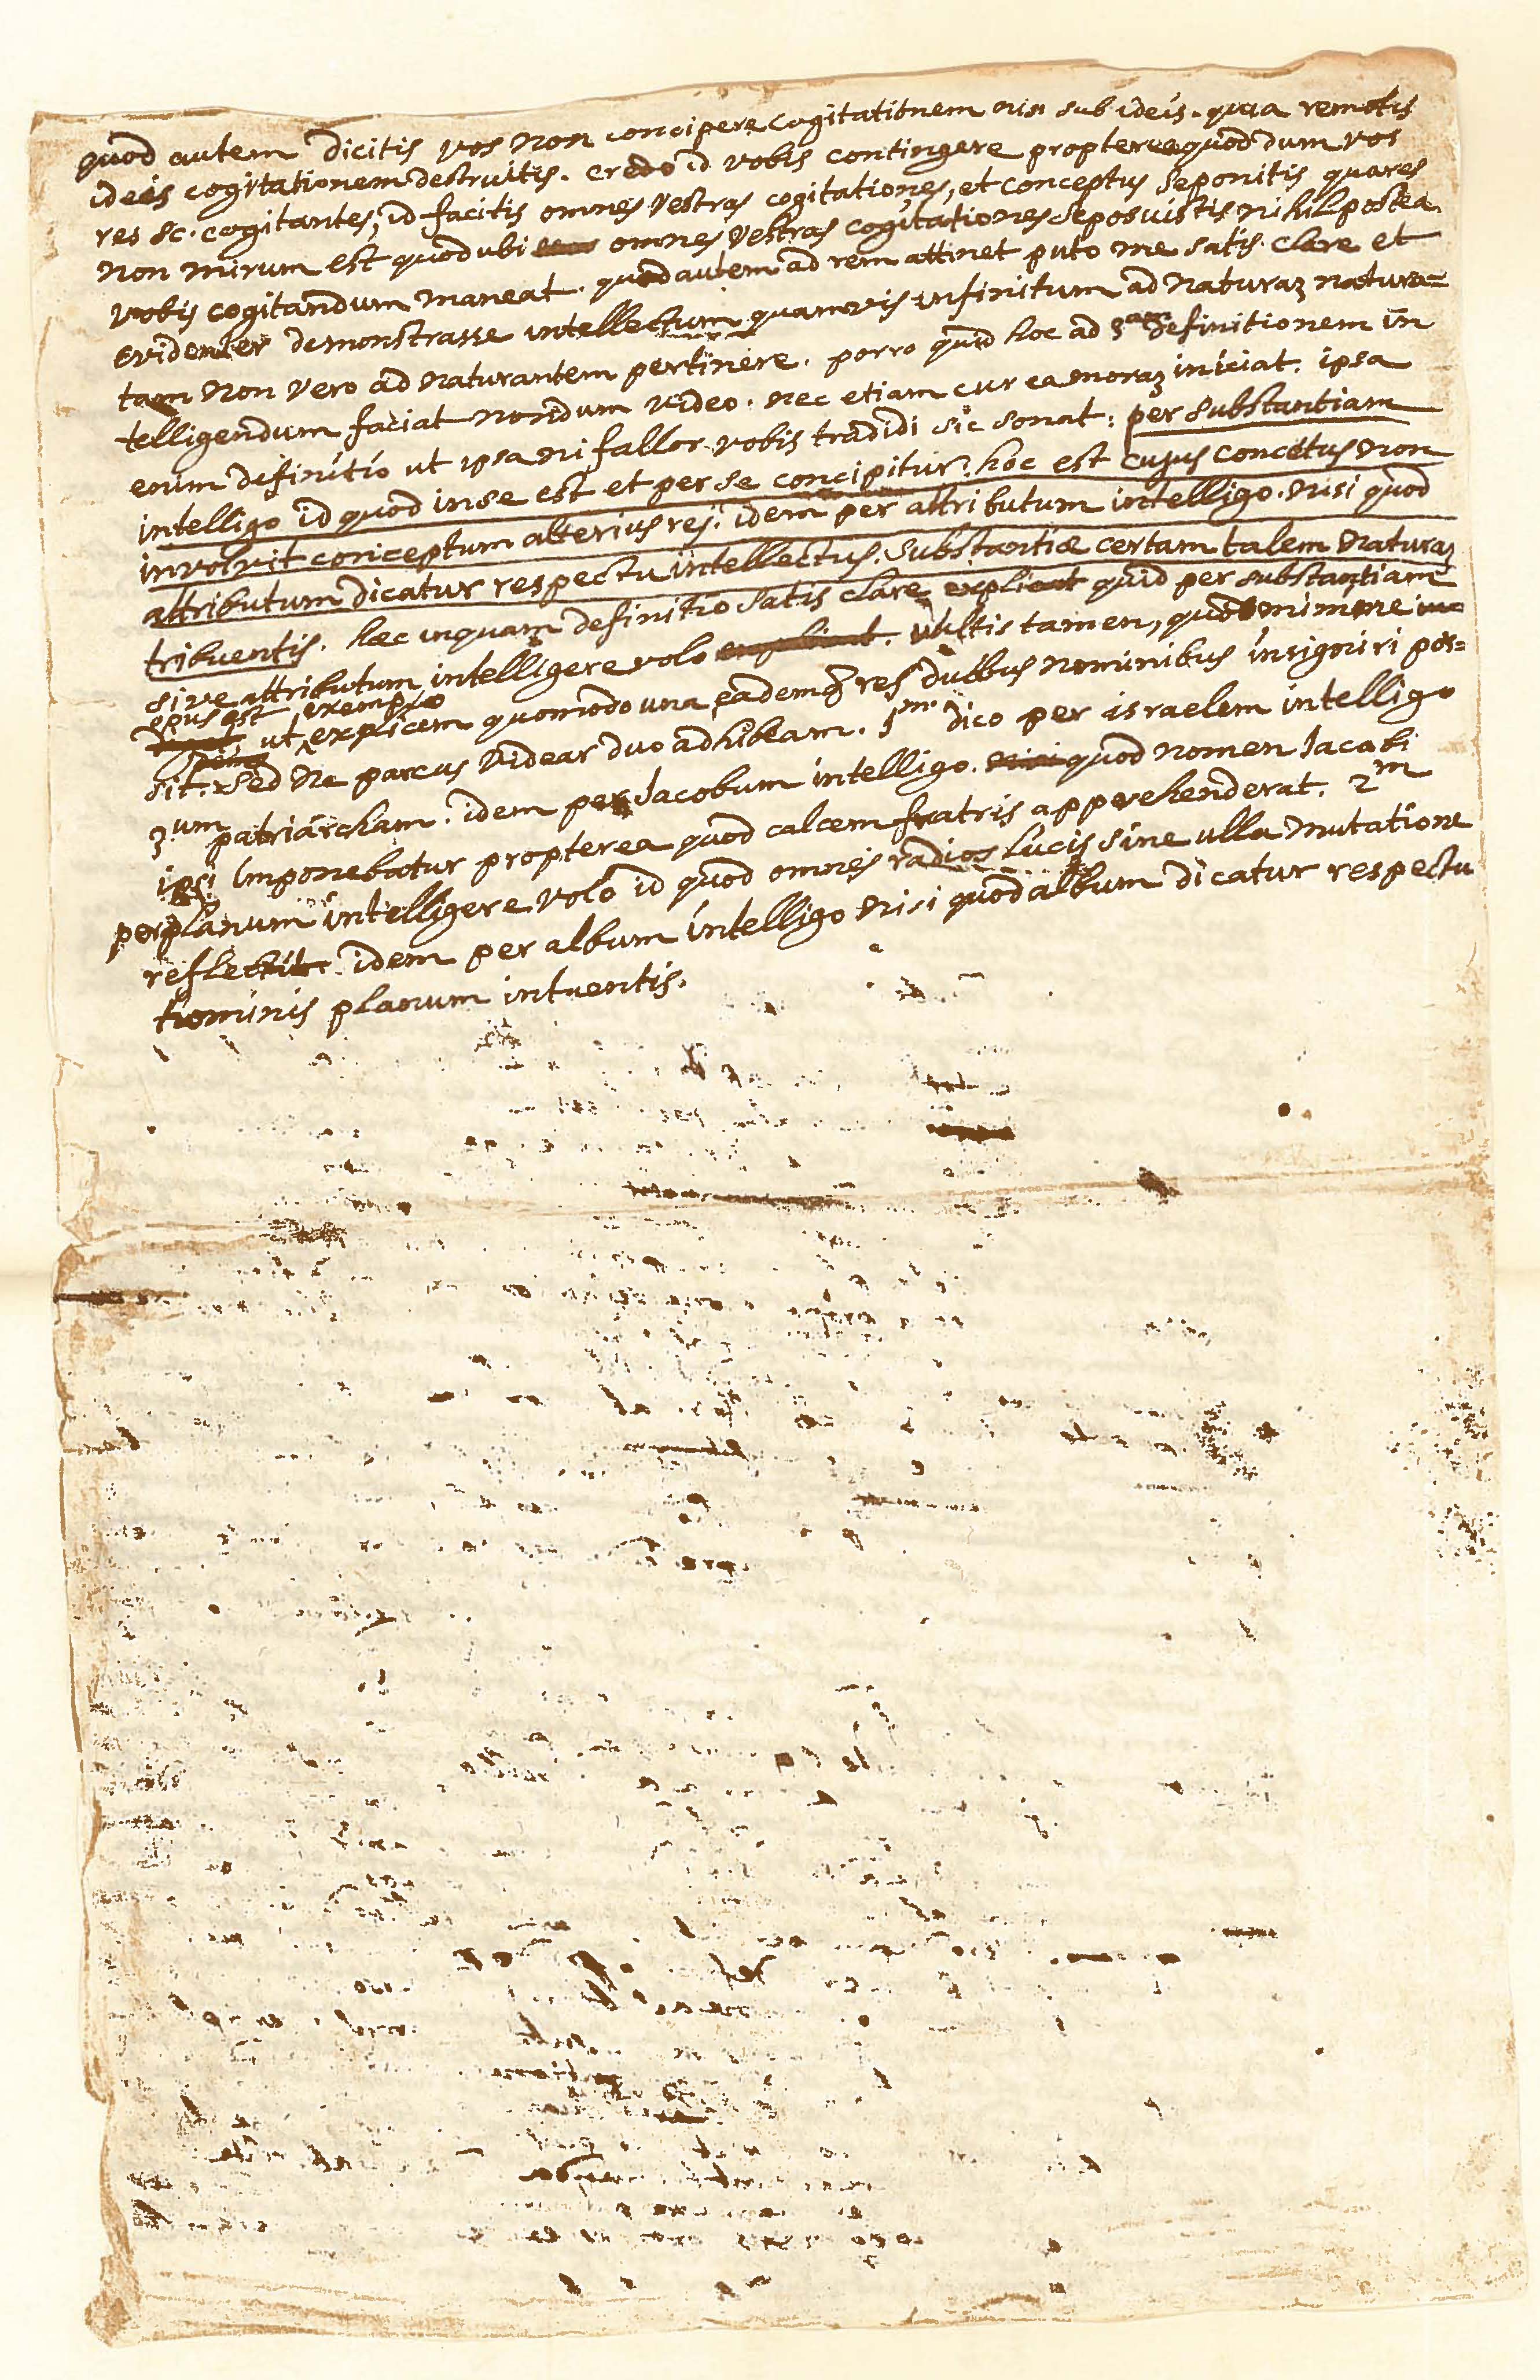 quod autem dicitis vos non concipere cogitationem nisi sub ideis. quia remotis
ideis cogitationem destruitis. credo id vobis contingere propterea quod dum vos
res sc. cogitantes, id facitis omnes vestras cogitationes, et conceptus seponitis quares
non mirum est quod ubi omnes vestras cogitationes seposuistis nihil postea
vobis cogitandum maneat. quod autem ad rem attinet puto me satis clare et
evidenter demonstrasse intellectum quamvis infinitum ad naturaꝫ natura=
tam non vero ad naturantem pertinere. porro quid hoc ad 3am definitionem in
telligendum faciat nondum video. nec etiam cur ea moraꝫ iniciat. ipsa
enim definitio ut ipsa ni fallor vobis tradidi sic sonat: per substantiam
intelligo id quod in se est et per se concipitur. hoc est cujus concetus non
involvit conceptum alterius rej. idem per attributum intelligo. nisi quod
attributum dicatur respectu intellectus. substantiæ certam talem naturaꝫ
tribuentis. hæc inquam definitio satis clare explicat quid per substantiam
sive attributum intelligere volo explicat. vultis tamen, quod minime
opus est ut exemplo explicem quomodo una eademq res duobus nominibus insigniri pos=
sit. sed ne parcus videar duo adhibeam. 1m. dico per israelem intelligo
3um patriarcham. idem per Jacobum intelligo. nisi quod nomen Jacobi
ipsi imponebatur propterea quod calcem fratris apprehenderat. 2m
per planum intelligere volo id quod omnes radios lucis sine ulla mutatione
reflectit. idem per album intelligo nisi quod album dicatur respectu
hominis planum intuentis.